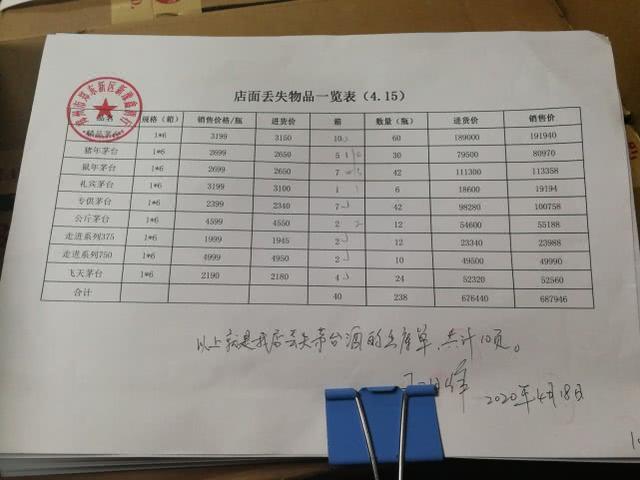 店面丢失物品一览表（4.15）
品名 规格（箱） 销售价格/瓶 进货价 箱 数量（瓶） 进货价 销售价
精品茅台 1*6 3199 3150 10 60 189000 191940
猪年茅台 1*6 2699 2650 5 30 79500 80970
鼠年茅台 1*6 2699 2650 7 42 111300 113358
礼宾茅台 1*6 3199 3100 1 6 18600 19194
专供茅台 1*6 2399 2340 7 42 98280 100758
公斤茅台 1*6 4599 4550 2 12 54600 55188
走进系列375 1*6 1999 1945 2 12 23340 23988
走进系列750 1*6 4999 4950 2 10 49500 49990
飞天茅台 1*6 2190 2180 4 24 52320 52560
合计 40 238 676440 687946
以上就是我店丢失茅台酒的出库单，共计10页。
2020年4月18日